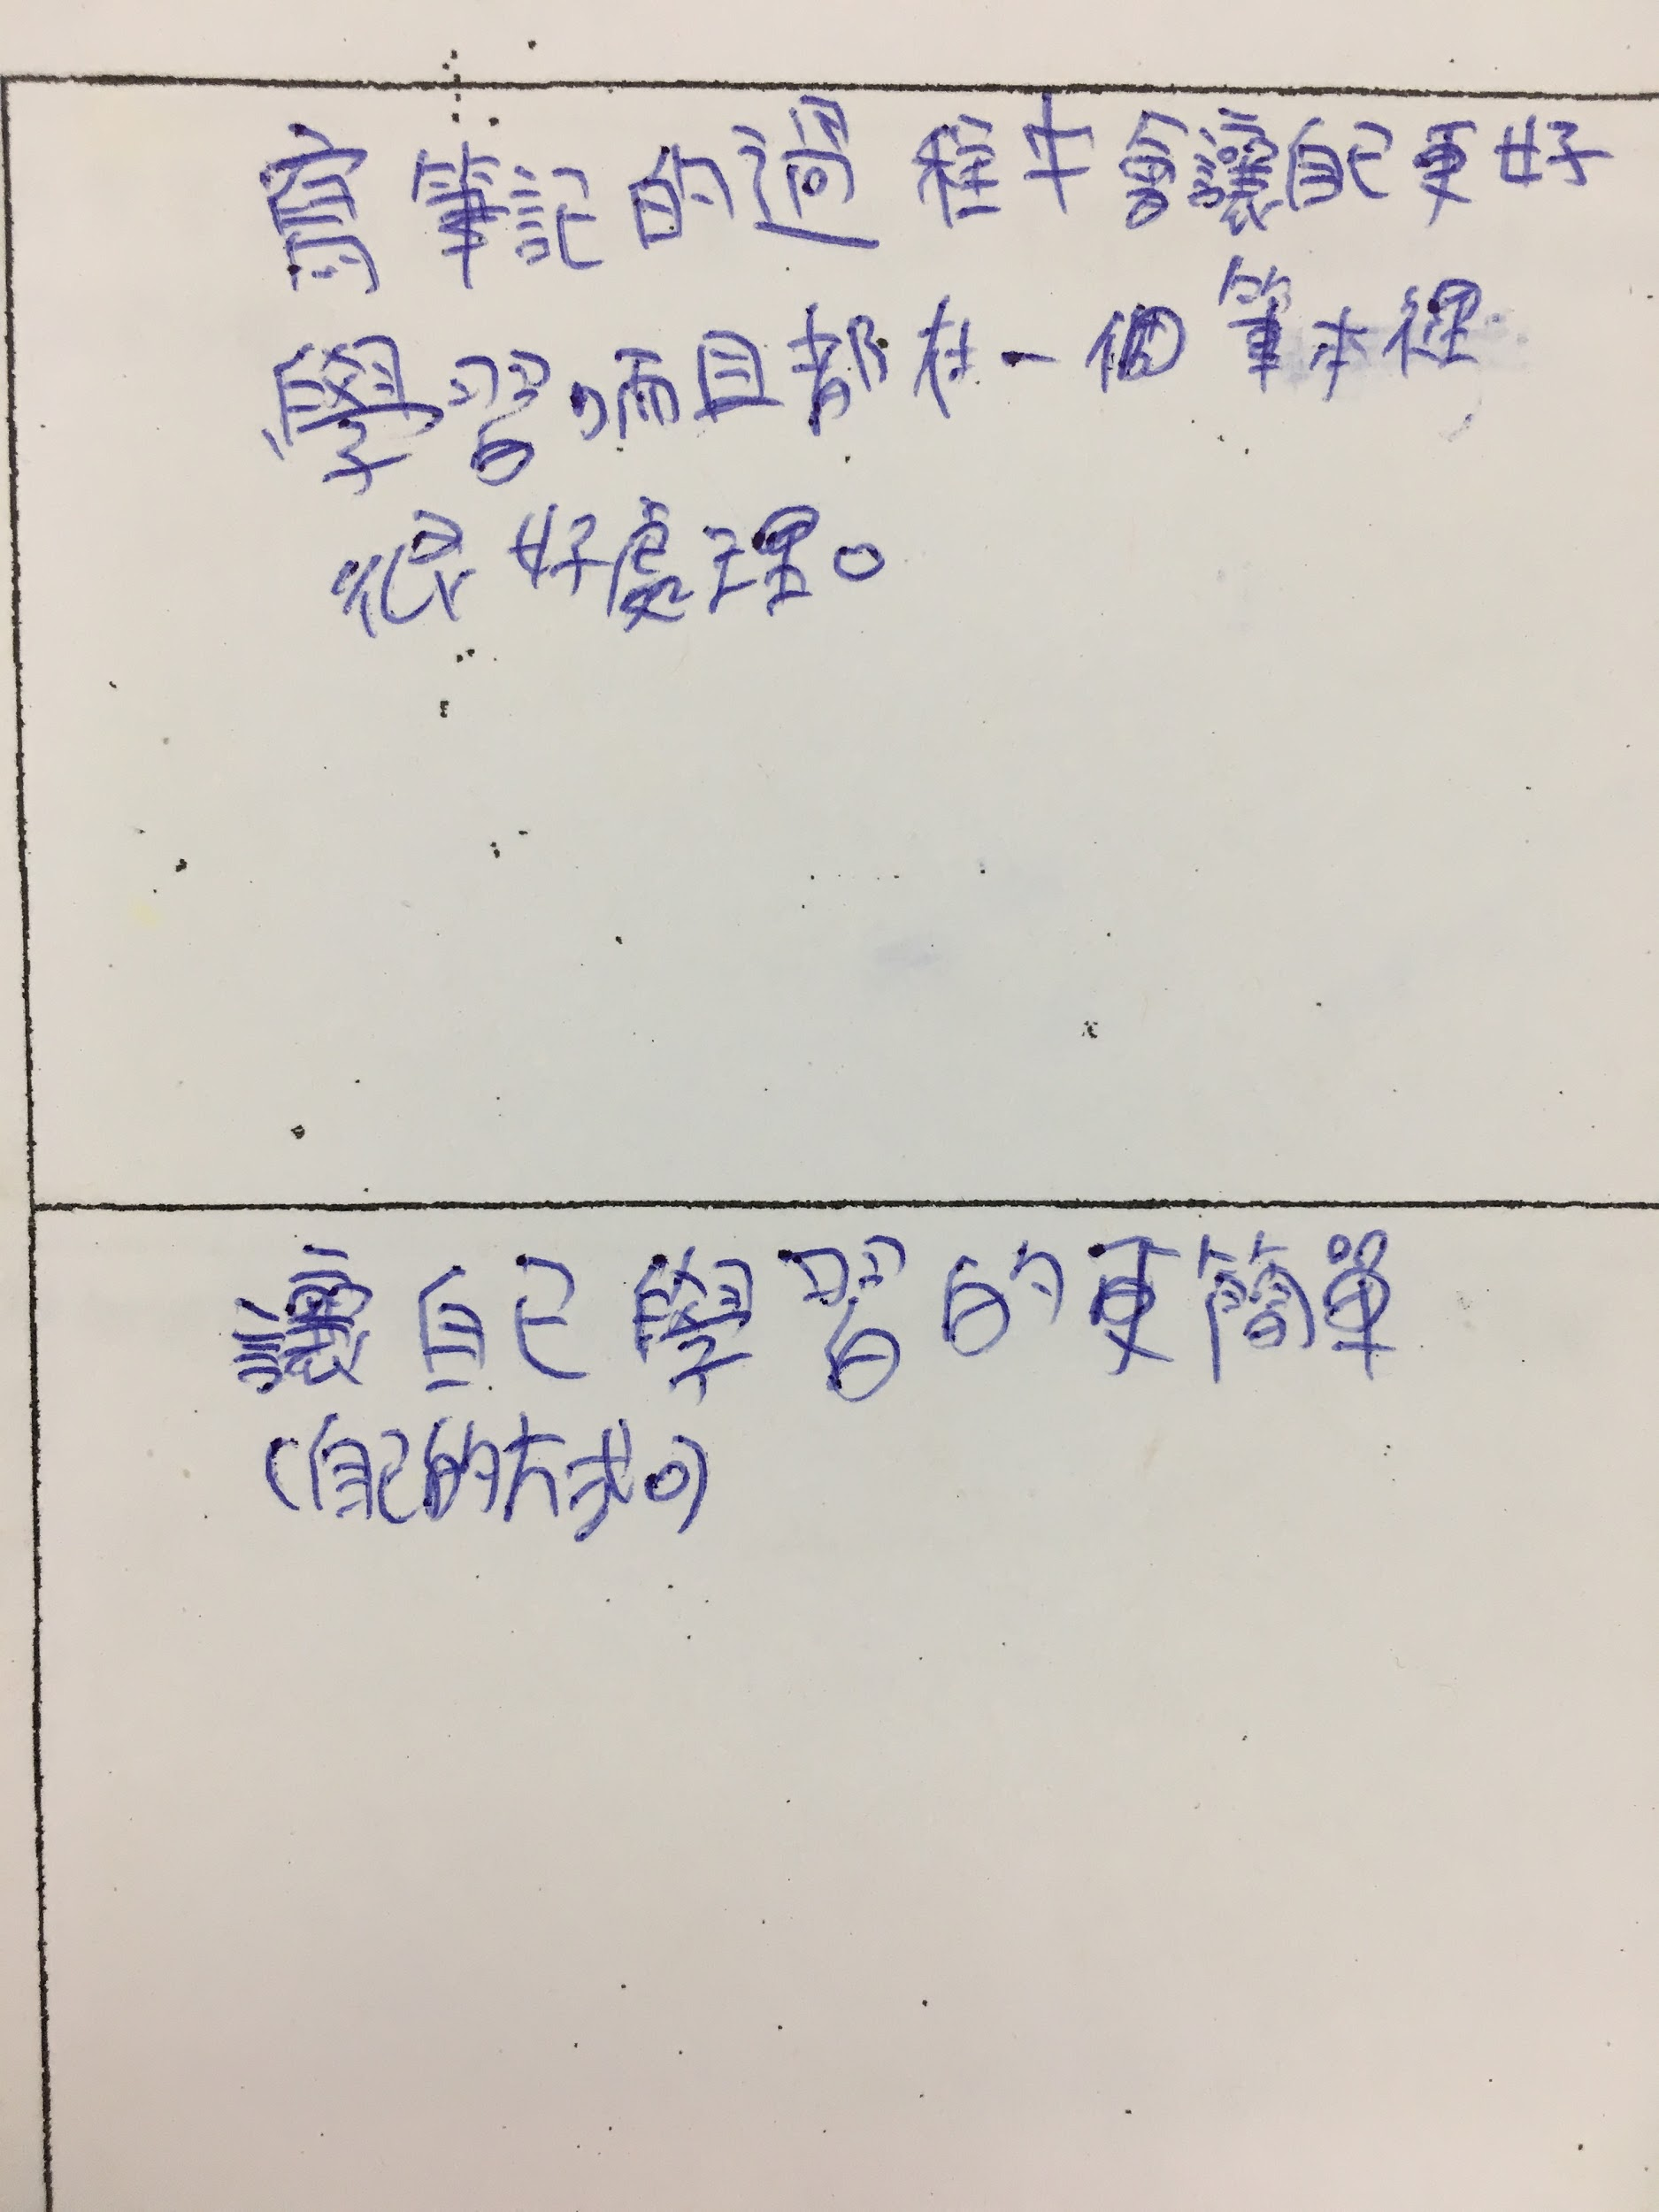 寫筆記的過程中會讓自己更好
學習,而且都在一個筆本裡
很好處理。
讓自己學習的更簡單
(自己的方式。)